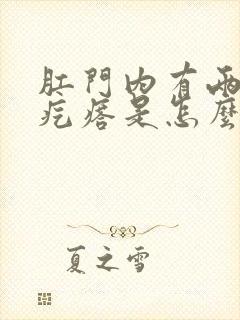 肛門內有兩
疙瘩是怎麼
夏之雪